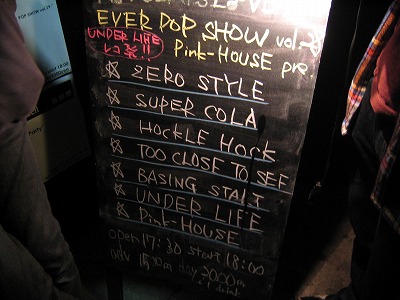 EVER POP SHOW vol.
UNDER LIFE
レコ発!!
Pink-HOUSE pre.
☆ ZERO STYLE
☆ SUPER COLA
☆ HOCKLE HOCK
☆ TOO CLOSE TO SEE
☆ BASING START
☆ UNDER LIFE
☆ Pink-HOUSE
open 17:30 start 18:00